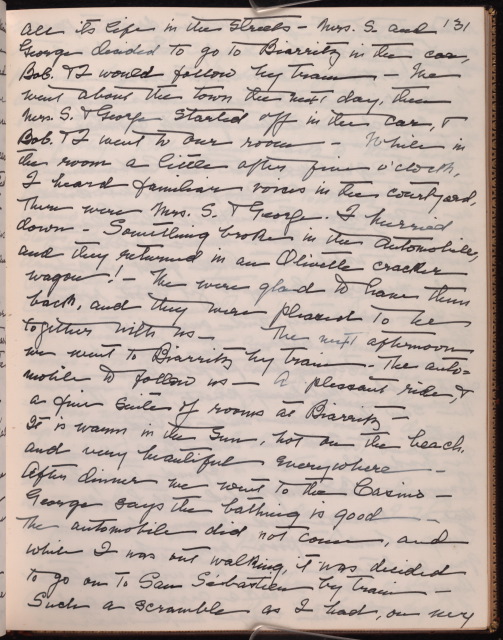 all its life in the streets - Mrs. S. and 131
George decided to go to Biarritz in the car,
Bob. & I would follow by train - We
went about the town the next day, then
Mrs. S. & George started off in the car, &
Bob. & I went to our room - While in
the room a little after five o'clock,
I heard familiar voices in the courtyard,
There were Mrs. S. & George. I hurried
down - Something broke in the Automobile,
and they returned in an Olivette cracker
wagon! - We were glad to have them
back, and they were pleased to be
together with us - The next afternoon
we went to Biarritz by train - The auto-
mobile to follow us - A pleasant ride, &
a fine suite of rooms at Biarritz -
It is warm in the sun, hot on the beach,
and very beautiful everywhere -
After dinner we went to the Casino -
George says the bathing is good -
The automobile did not come, and
while I was out walking, it was decided
to go on to San Sébastien by train -
Such a scramble as I had, on my